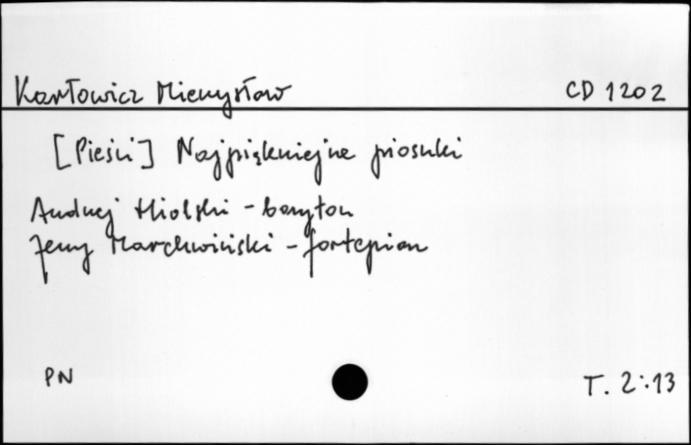 Karłowicz Mieczysław CD 1202
[Pieśni] Najpiękniejsze piosnki
Andrzej Hiolski - baryton
Jerzy Marchwiński - fortepian
PN T. 2:13